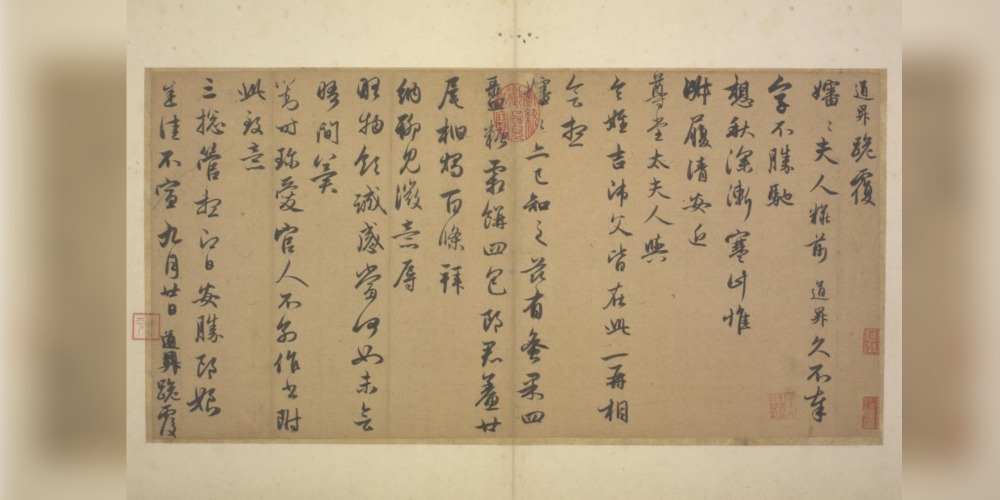 道昇跪覆
嬸〻夫人糚前 道昇久不奉
字不勝馳
想秋深漸寒計惟
履清安近
尊堂太夫人與
令姪吉師父皆在此一再相
會想
嬸〻亦已知之茲有蜜果四
盝糖霜餅四包郎君鯗廿
尾桕燭百條拜
納聊見微意辱
物領誠感當何如未會
晤間冀
對時珍愛官人不別作書附
此致意
三總管想即日安勝郎娘
佳不宣九月廿日 道昇跪覆